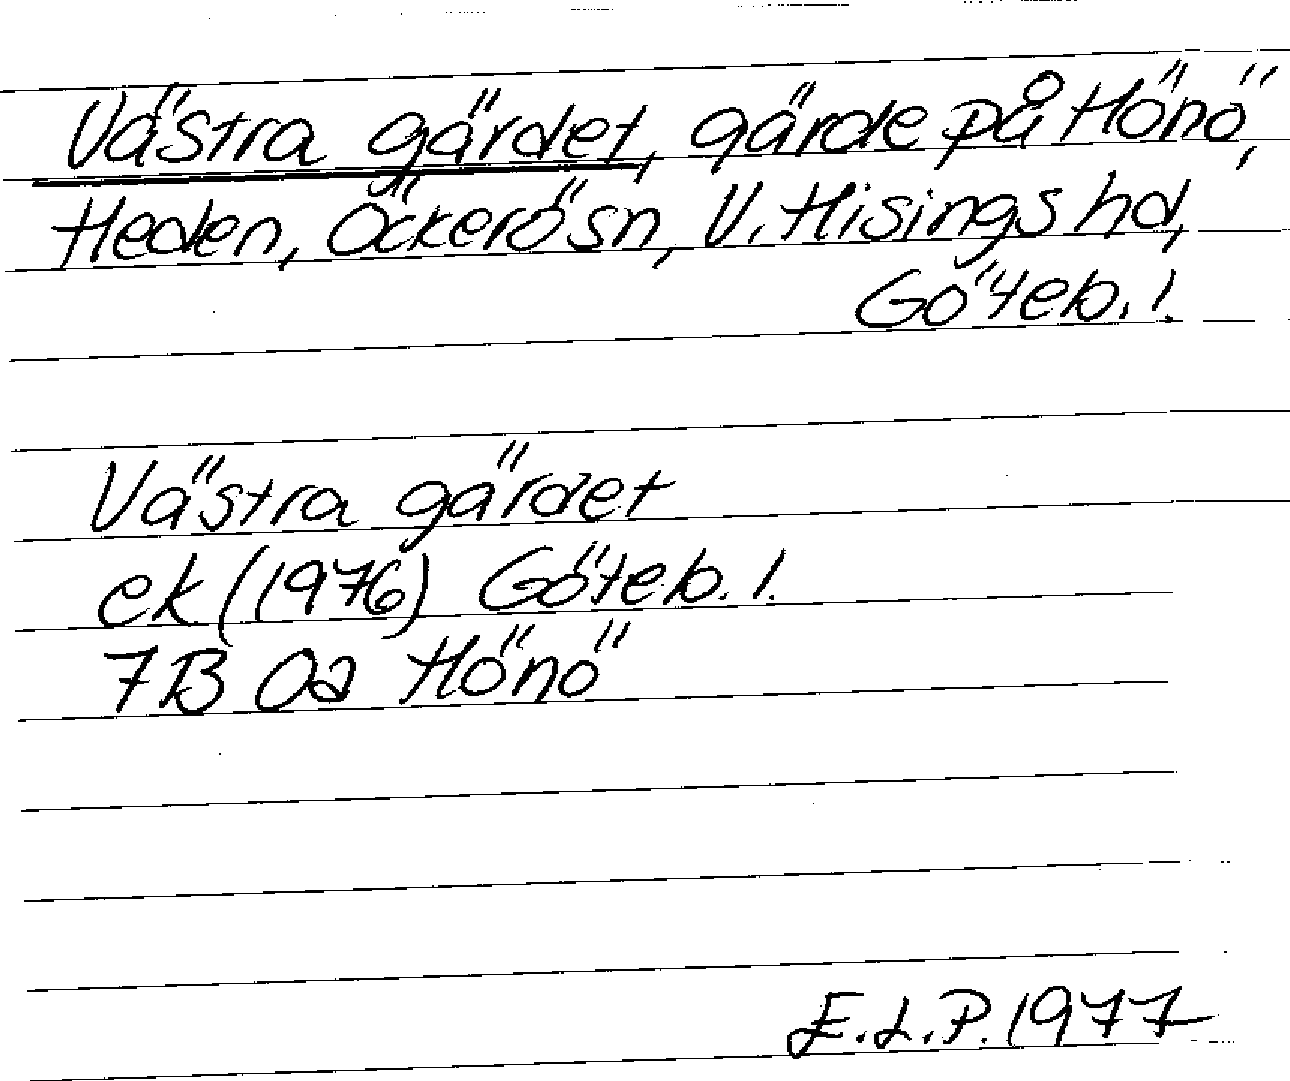 Västra gärdet, gärde på Hönö,
Heden, Öckerö sn, V. Hisings hd,
Göteb. l.
Västra gärdet
ek (1976) Göteb. l.
7B 0a Hönö
E.L.P. 1977